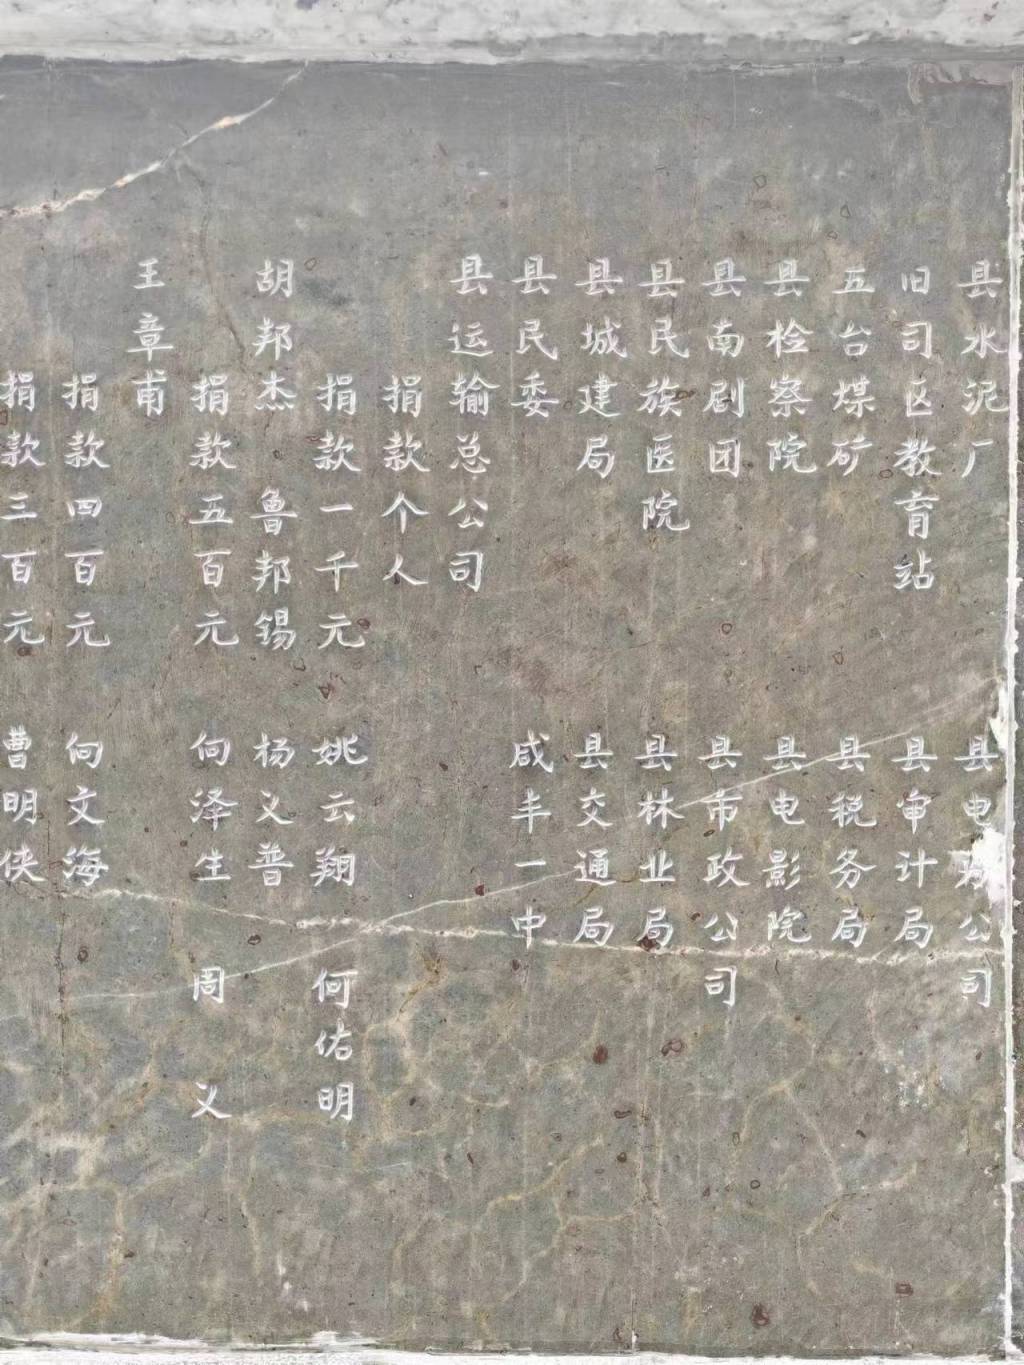 县水泥厂 县电力公司
旧司区教育站 县审计局
五台煤矿 县税务局
县检察院 县电影院
县南剧团 县市政公司
县民族医院 县林业局
县城建局 县交通局
县民委 咸丰一中
县运输总公司
捐款个人
捐款一千元 姚云翔 何佑明
胡邦杰 鲁邦锡 杨义普
捐款五百元 向泽生 周义
王章甫
捐款四百元 向文海
捐款三百元 曹明侠